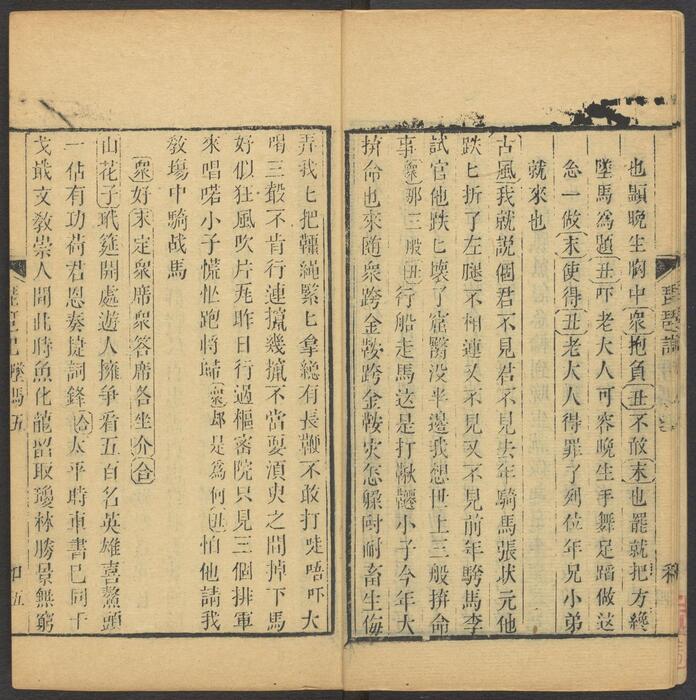 也顯晚生胸中衆抱負丑不敢末也罷就把方纔
墜馬為題丑吓老大人可容晚生手舞足蹈做這
怎一做末使得丑老大人得罪了列位年兄小弟
就來也
古風我就説個君不見君不見去年騎馬張狀元他
跌匕折了左腿不相連又不見又不見前年騎馬李
試官他跌匕壞了窟臀没半邊我想世上三般拚命
事衆那三般丑行船走馬這是打鞦韆小子今年大
拚命也來隨衆跨金鞍跨金鞍災怎躲耐耐畜生侮
弄我匕把韁繩緊匕拿縂有長鞭不敢打唗唔吓大
喝三聲不肯行連攛幾攛不當耍湏臾之間掉下馬
好似狂風吹片瓦昨日行過樞密院只見三個排軍
來唱喏小子慌忙跑將歸衆郍是為何丑怕他請我
教塲中騎战馬
衆好末定衆席衆答席各坐介合
山花子玳筵開處遊人擁爭看五百名英雄喜鰲頭
一佔有功荷君恩奏捷詞鋒合太平時車書已同干
戈戢文敎崇人間此時魚化龍留取瓊林勝景無窮
琵琶記墜馬五